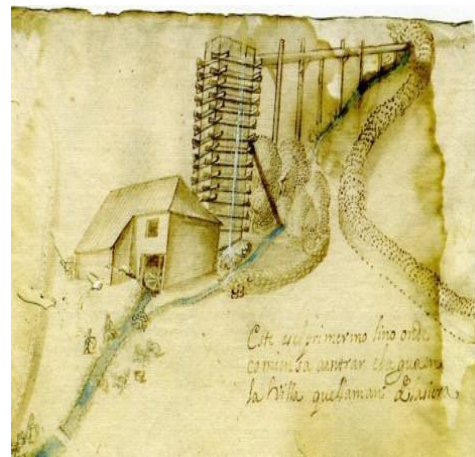 Este es el primer molino onde
comiença aentrar esta gua en
la Villa que llaman